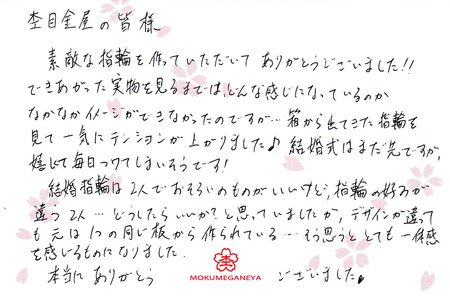 杢目金屋の皆様
素敵な指輪を作っていただいてありがとうございました!!
できあがった実物を見るまでは、どんな感じになっているのか
なかなかイメージができなかったのですが…箱から出てきた指輪を
見て一気にテンションが上がりました♪ 結婚式はまだ先ですが、
嬉しくて毎日つけてしまいそうです!
結婚指輪は2人でおそろいのものがいいけど、指輪の好みが
違う2人…どうしたらいいか?と思っていましたが、デザインが違って
も元は1つの同じ板から作られている…そう思うととても一体感
を感じるものになりました。
本当にありがとうございました♪
MOKUMEGANEYA